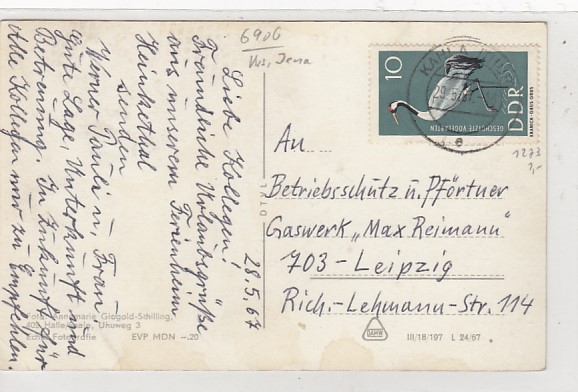 6906
Krs, Jena
28.5.67
Liebe Kollegen!
Freundliche Urlaubsgrüße
aus unserem Ferienheim
Henkethal
senden
Werner Pauli u. Frau
Gute Lage, Unterkunft und
Betreuung. In Zukunft für
Alle Kollegen nur zu Empfehlen.
An
Betriebsschutz u. Pförtner
Gaswerk „Max Reimann"
703-Leipzig
Rich.-Lehmann-Str. 114
10
DDR
GESCHÜTZTE VOGELARTEN
KAHLA
29.5.67
e
1273
1,-
Foto: Annemarie Giegold-Schilling,
402 Halle/Saale, Uhuweg 3
Echte Fotografie EVP MDN -.20
III/18/197 L 24/67